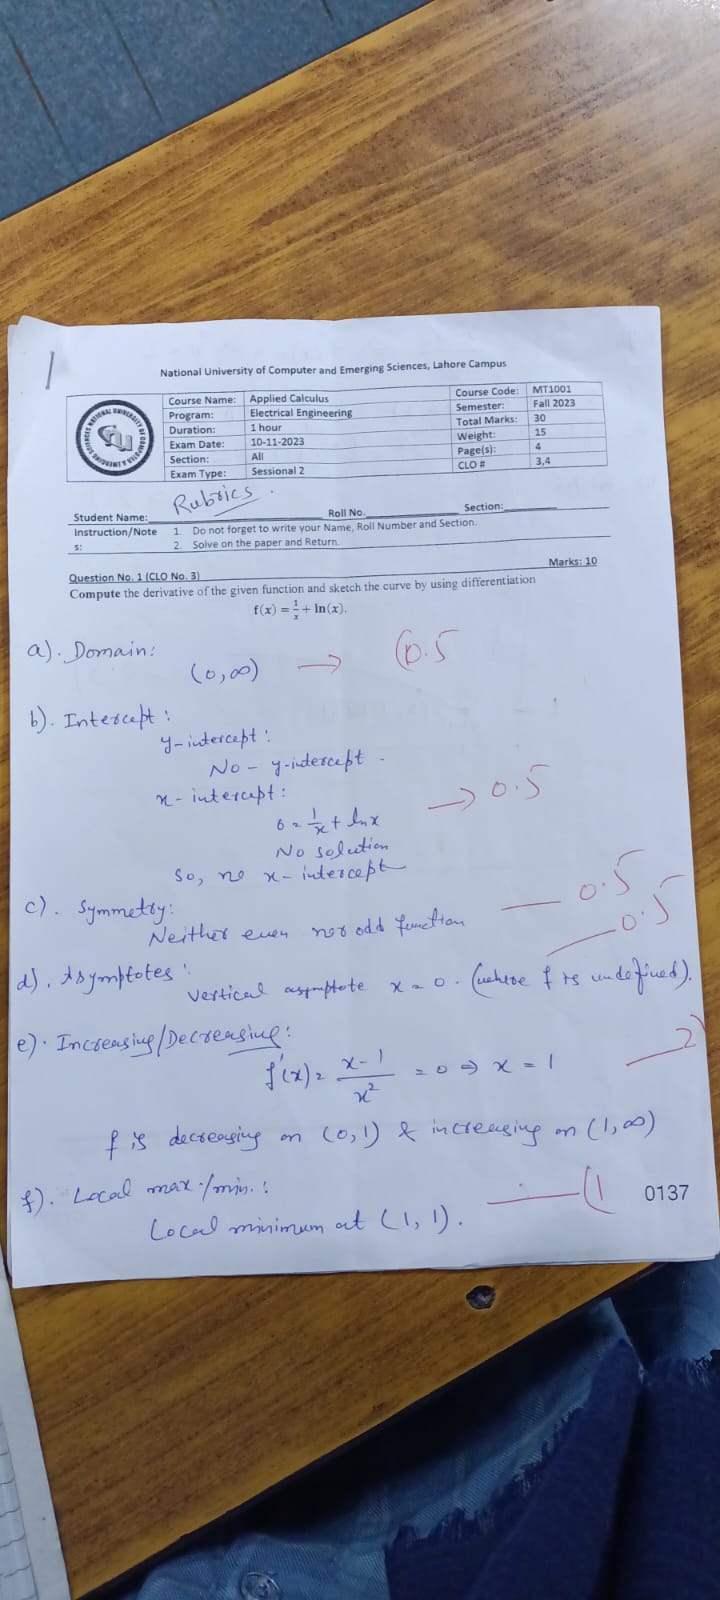 National University of Computer and Emerging Sciences, Lahore Campus
Course Name: Applied Calculus Course Code: MT1001
Program: Electrical Engineering Semester: Fall 2023
Duration: 1 hour Total Marks: 30
Exam Date: 10-11-2023 Weight: 15
Section: All Page(s): 4
Exam Type: Sessional 2 CLO # 3,4
Rubrics.
Student Name: Roll No. Section:
Instruction/Note 1. Do not forget to write your Name, Roll Number and Section.
s: 2. Solve on the paper and Return.
Question No. 1 (CLO No. 3) Marks: 10
Compute the derivative of the given function and sketch the curve by using differentiation
f(x) = 1/x + ln(x).
a). Domain:
(0,∞) → 0.5
b). Intercept:
y-intercept:
No - y-intercept.
x-intercept: → 0.5
0 = 1/x + lnx
No solution
So, no x-intercept
c). Symmetry: 0.5
Neither even nor odd function
0.5
d). Asymptotes:
vertical asymptote x = 0. (where f is undefined).
e). Increasing/Decreasing: 2
f'(x) = x-1/x² = 0 ⇒ x = 1
f is decreasing on (0,1) & increasing on (1,∞)
f). Local max./min.: 1
0137
Local minimum at (1,1).